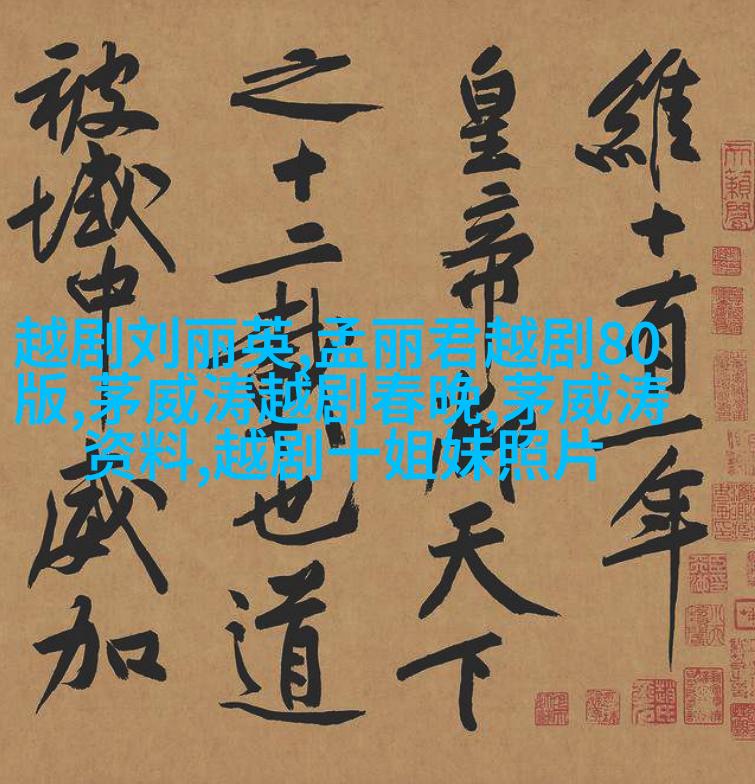 越剧刘丽英,孟丽君越剧80
版,茅威涛越剧春晚,茅威涛
资料,越剧十姐妹照片
維十有一年
皇帝御天下
之十二載也道
被域中威加